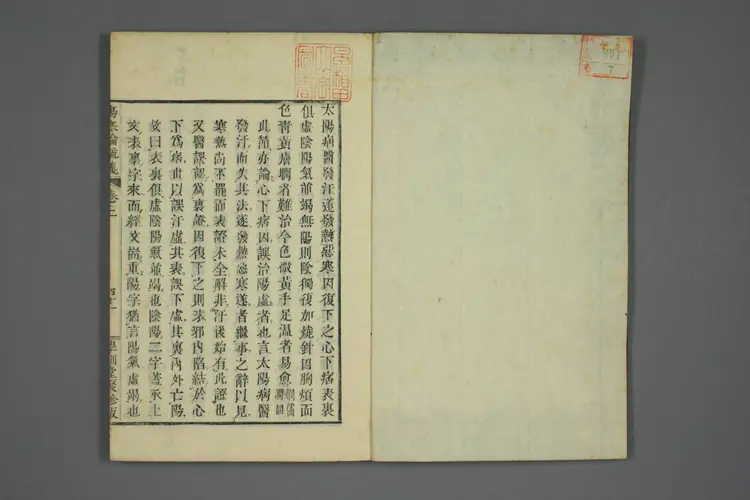 太陽病醫發汗遂發熱惡寒因復下之心下痞表裏
俱虛陰陽氣並竭無陽則陰獨復加燒針因胸煩面
色青黃膚瞤者難治今色微黃手足温者易愈
此節亦論心下痞因誤治陽虛者也言太陽病醫
發汗而失其法遂發熱惡寒遂者繼事之辭以見
寒熱尚不罷而表證未全解非汗後始有此證也
又醫誤認爲裏證因復下之則表邪內陷結於心
下爲痞此以誤汗虛其表誤下虛其裏內外亡陽
故曰表裏俱虛陰陽氣並竭也陰陽二字蓋承上
文表裏字來而經文耑重陽字猶言陽氣虛竭也
傷寒論疏義
卷三
學訓堂聚珍版
7